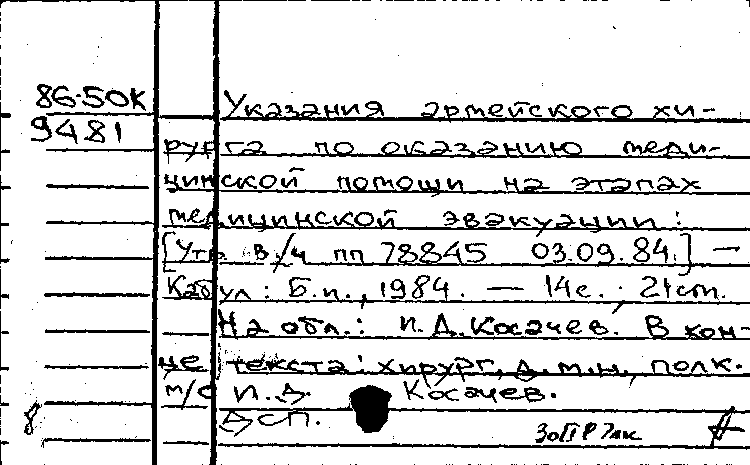 86-50К
9481
Указания армейского хи-
рурга по оказанию меди-
цинской помощи на этапах
медицинской эвакуации:
[Утв. в/ч пп 78845 03.09.84.] —
Кабул: Б.и., 1984. — 14с.; 21см.
На обл.: И.Д. Косачев. В кон-
це текста: хирург, д.м.н., полк.
м/с И.Д. Косачев.
ДСП.